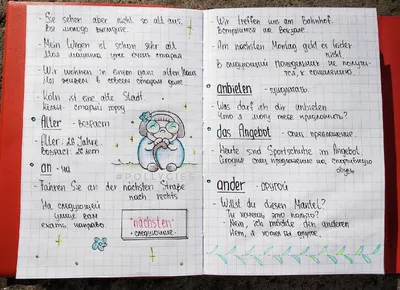 - Sie sehen aber nicht so alt aus.
Вы молодо выглядите.
- Mein Wagen ist schon sehr alt.
Моя машина уже очень старая
- Wir wohnen in einem ganz alten Haus
Мы живем в совсем старом доме
- Köln ist eine alte Stadt.
Кёльн - старый город
Alter - возраст
- Alter: 20 Jahre.
Возраст: 20 лет
an - на
- Fahren Sie an der nächsten Straße
nach rechts
На следующей
улице вам
ехать направо
"nächsten"
- следующие
- Wir treffen uns am Bahnhof.
Встретимся на вокзале
- Am nächsten Montag geht es leider
nicht
В следующий понедельник не получит-
ся, к сожалению.
anbieten - предлагать.
- Was darf ich dir anbieten
Что я могу тебе предложить?
das Angebot - спец. предложение.
- Heute sind Sportschuhe im Angebot
Сегодня спец. предложение на спортивную
обувь
ander - другой
- Willst du diesen Mantel?
Ты хочешь это пальто?
- Nein, ich möchte den anderen
Нет, я хочу другое.